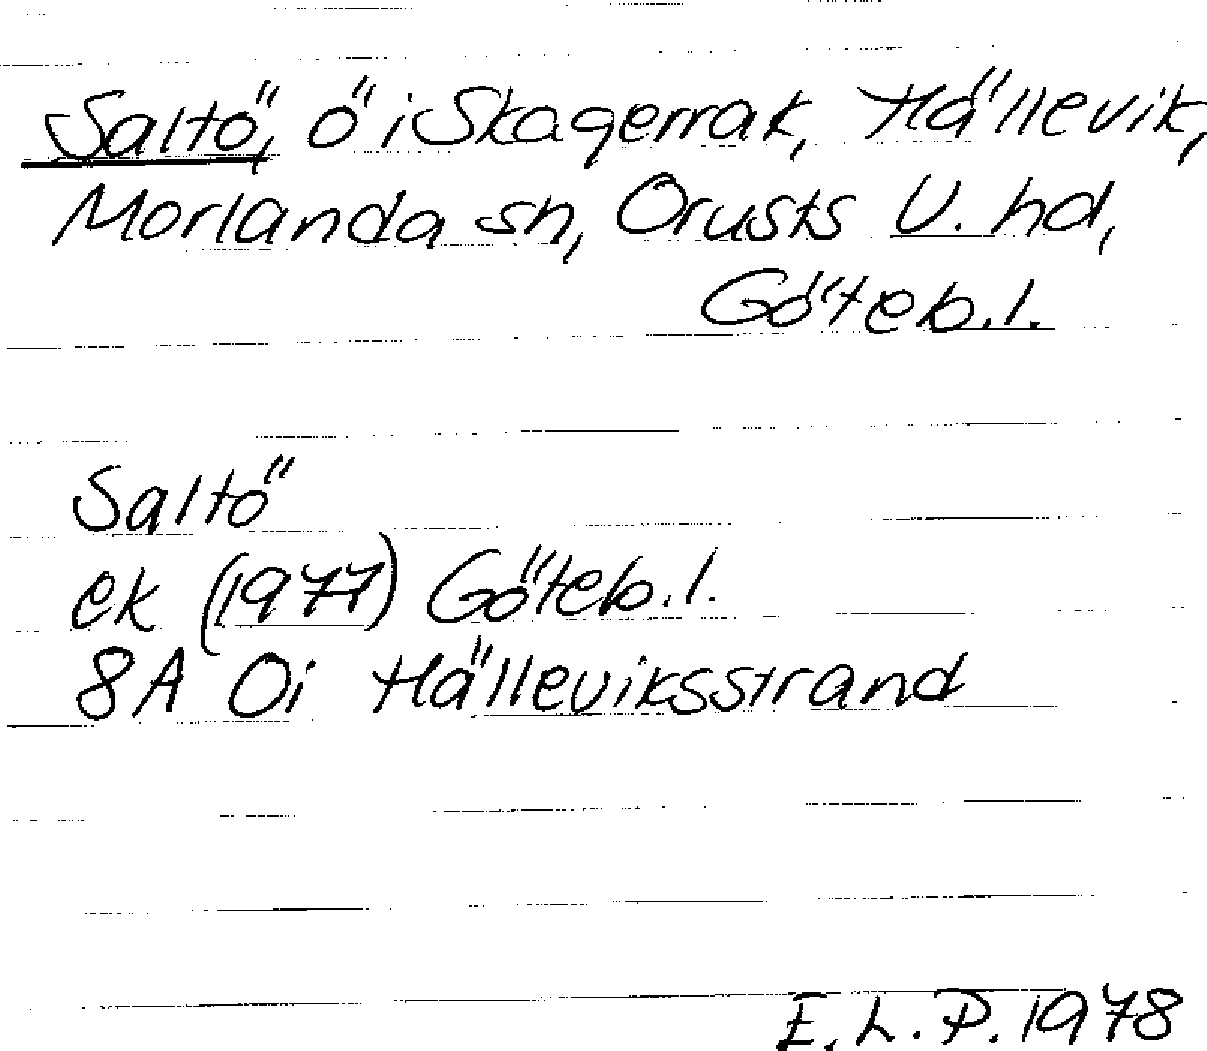 Saltö, ö i Skagerrak, Hällevik,
Morlanda sn, Orusts V. hd,
Göteb.l.
Saltö
ek (1977) Göteb.l.
8A 0i Hälleviksstrand
E.L.P. 1978